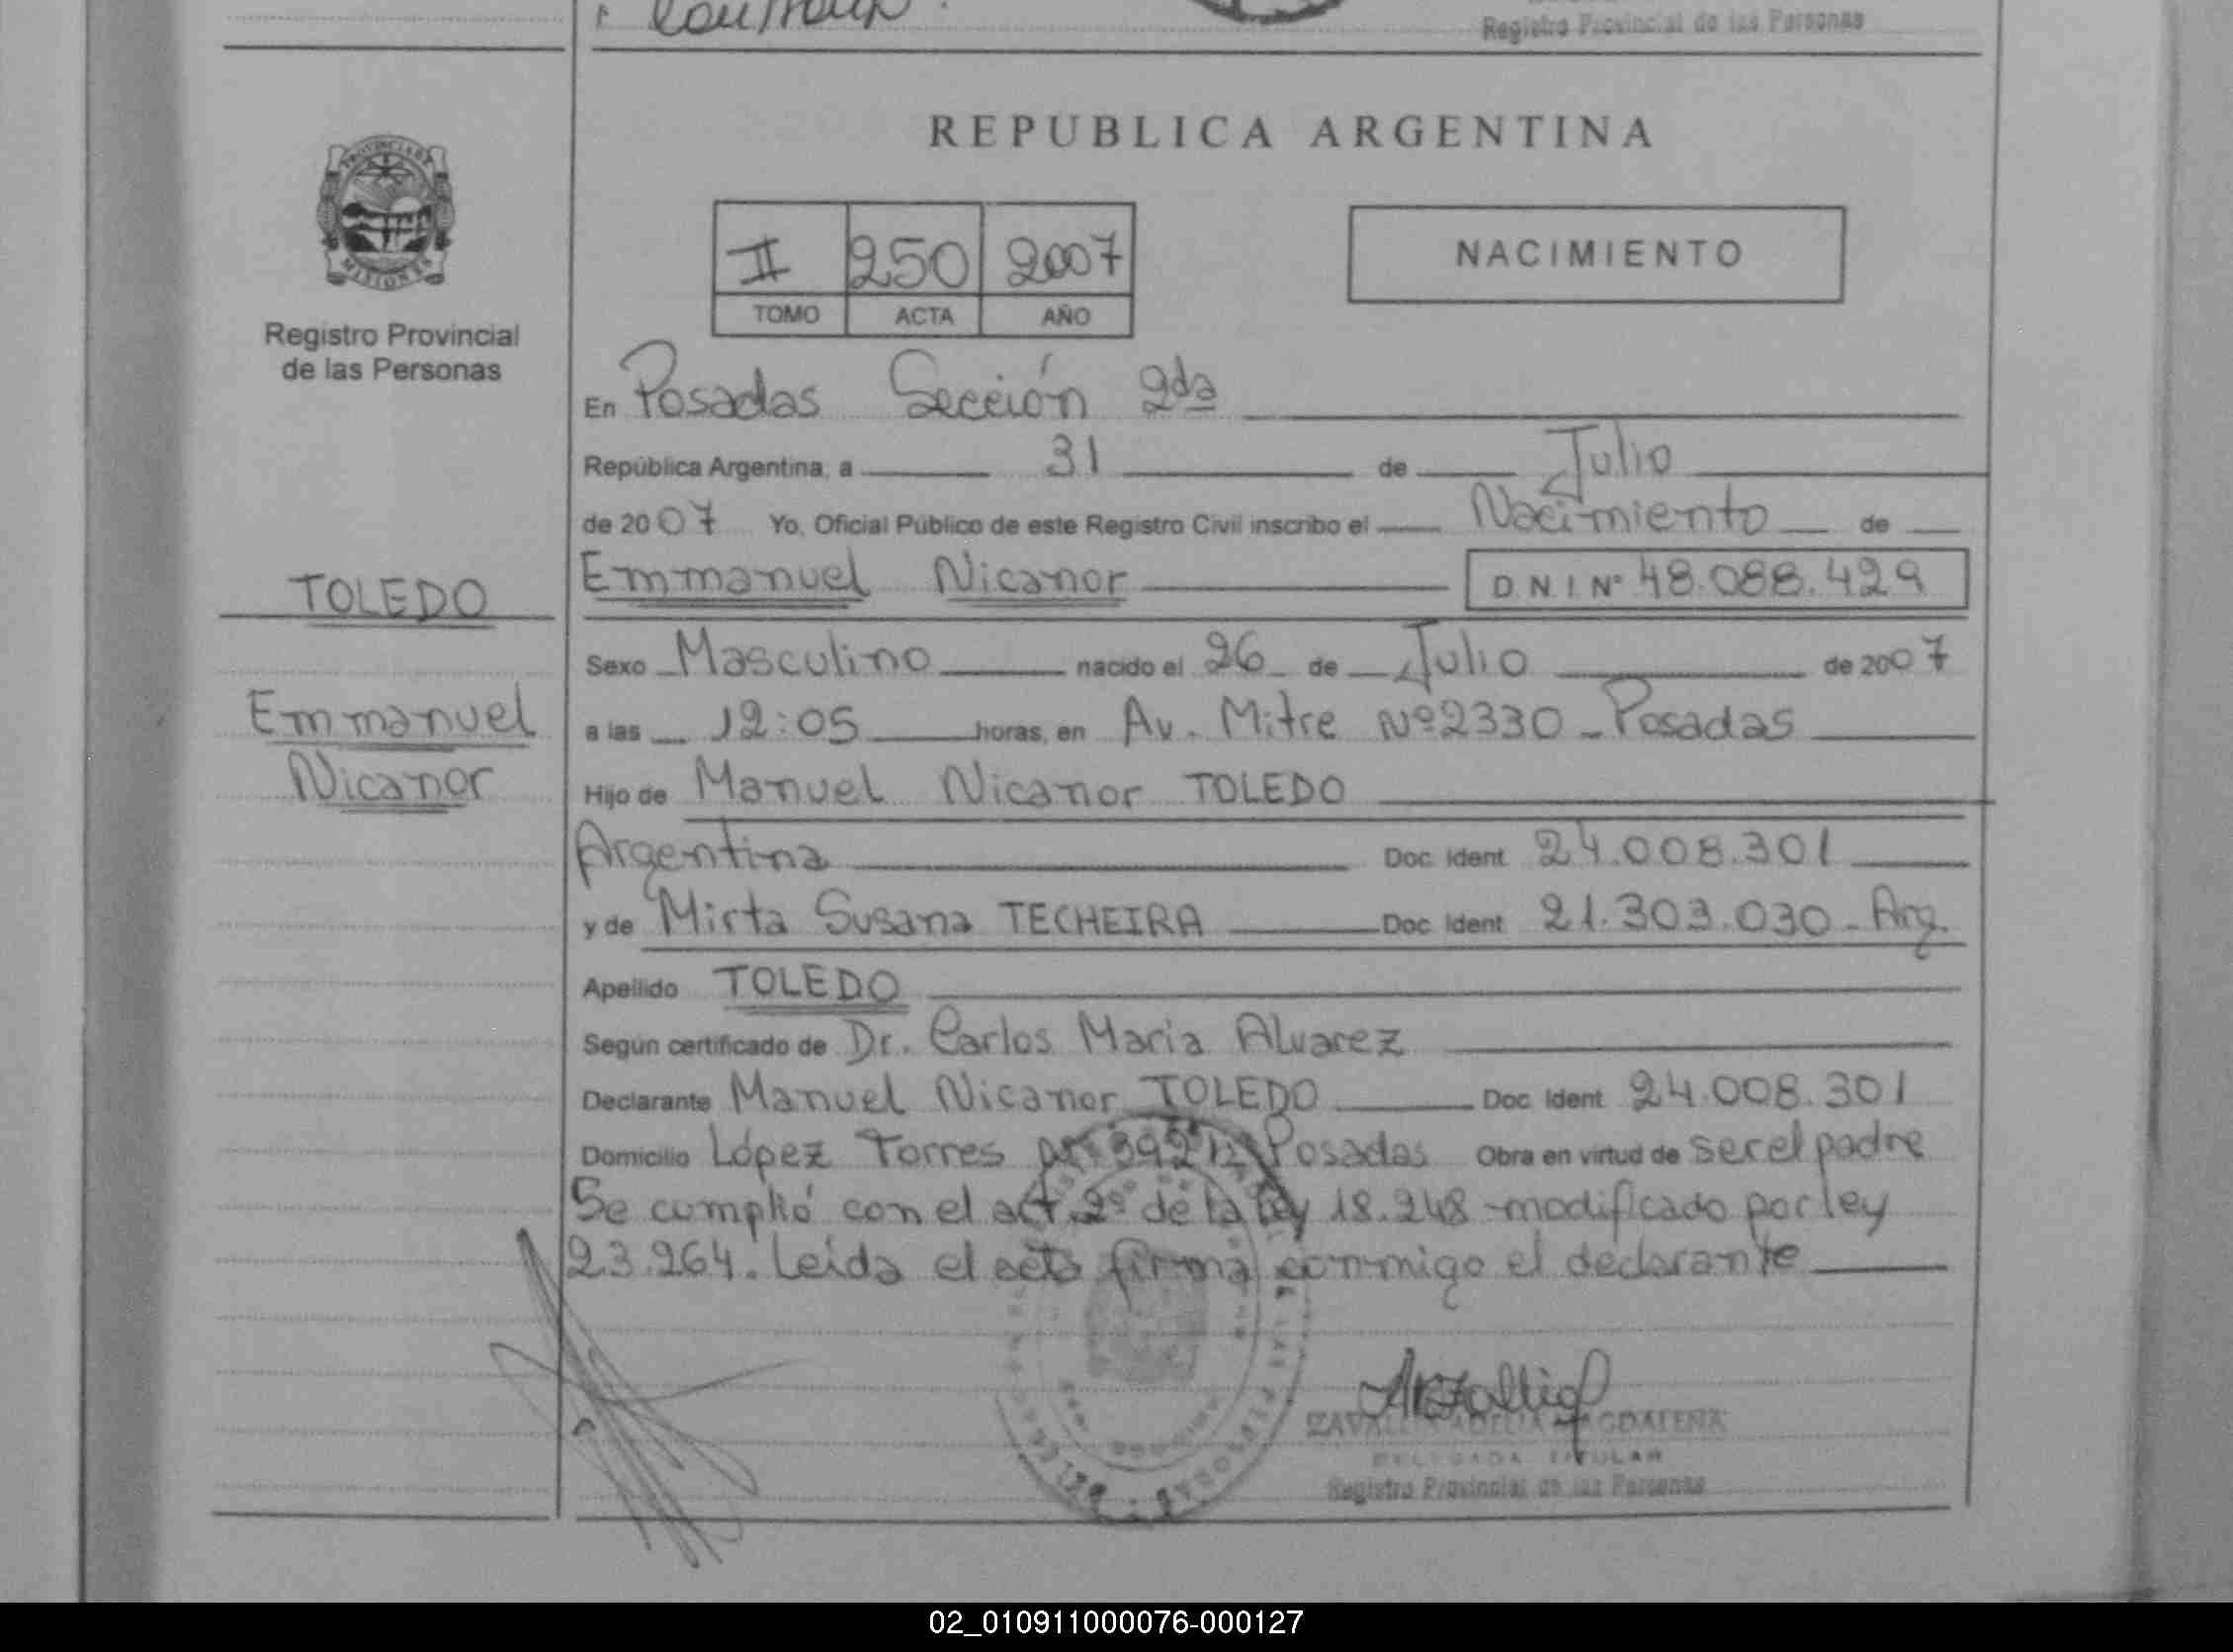 Registro Provincial de las Personas
REPUBLICA ARGENTINA
PROVINCIA DE
MISIONES
Registro Provincial
de las Personas
II 250 2007
TOMO ACTA AÑO
NACIMIENTO
En Posadas Sección 2da
República Argentina, a 31 de Julio
de 2007 Yo, Oficial Público de este Registro Civil inscribo el Nacimiento de
TOLEDO
Emmanuel Nicanor D.N.I. Nº 48.088.429
Sexo Masculino nacido el 26 de Julio de 2007
Emmanuel
Nicanor
a las 12:05 horas, en Av. Mitre Nº 2330 - Posadas
Hijo de Manuel Nicanor TOLEDO
Argentina Doc. Ident. 24.008.301
y de Mirta Susana TECHEIRA Doc. Ident. 21.303.030 - Arg.
Apellido TOLEDO
Según certificado de Dr. Carlos Maria Alvarez
Declarante Manuel Nicanor TOLEDO Doc. Ident. 24.008.301
Domicilio López Torres Posadas Obra en virtud de ser el padre
Se cumplió con el art. 2º de la ley 18.248 - modificado por ley
23.264. Leida el acta firma conmigo el declarante
ADELIA MAGDALENA
DELEGADA TITULAR
Registro Provincial de las Personas
02_010911000076-000127